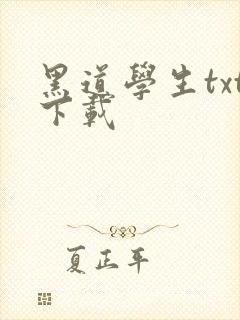 黑道學生txt
下載
夏正平